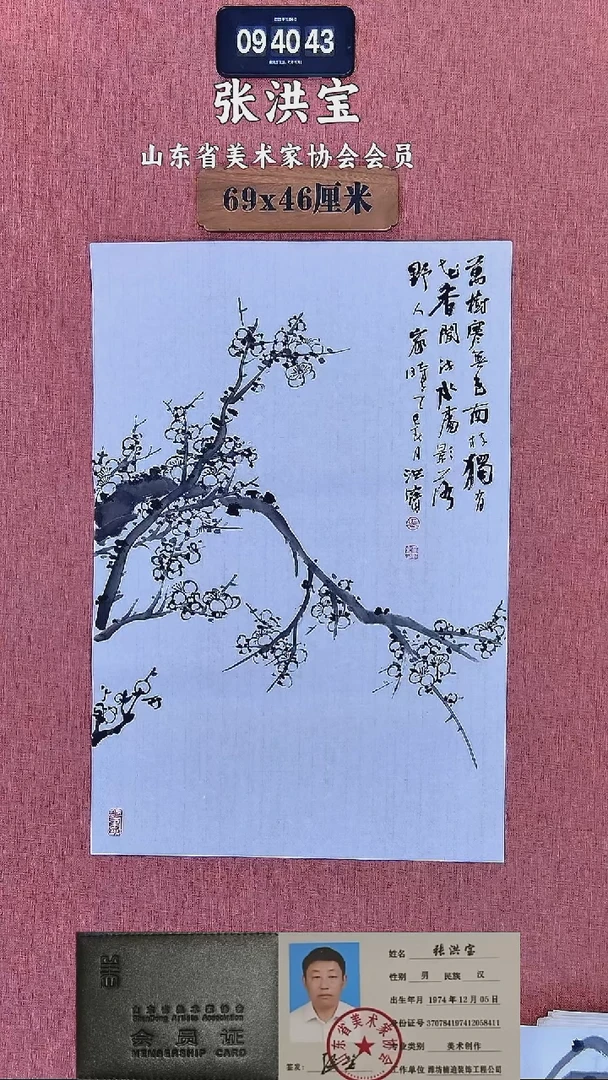 09 40 43
张洪宝
山东省美术家协会会员
69x46厘米
萬樹寒無色南枝獨有
花香聞流水處影落
野人家時 月洪寶
山东省美术家协会
ShanDong Artists Association
会员证
MEMBERSHIP CARD
姓名 张洪宝
性别 男 民族 汉
出生年月 1974年12月05日
身份证号 370784197412058411
专业类别 美术创作
工作单位 潍坊楠迪装饰工程公司
签发：
山东省美术家协会